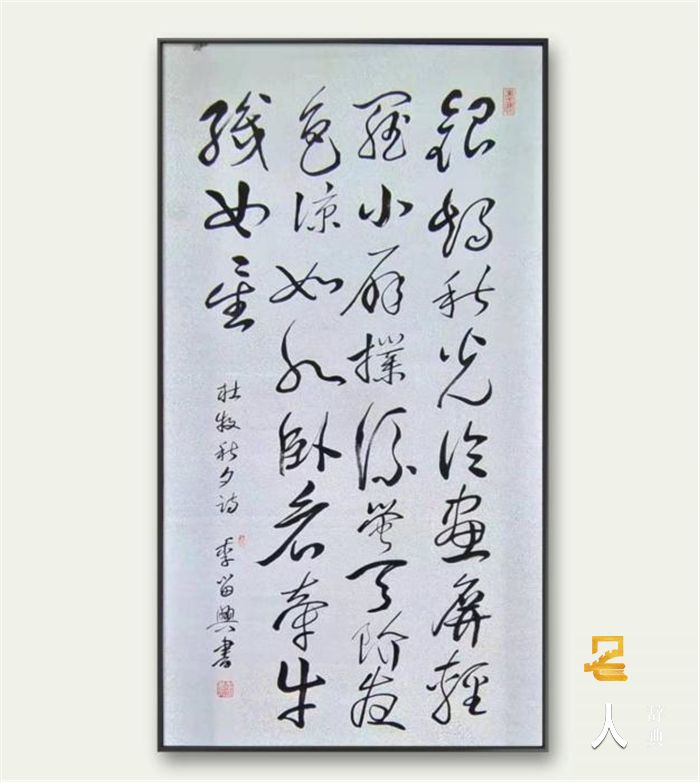 銀燭秋光冷畫屏輕
羅小扇撲流螢天階夜
色涼如水臥看牽牛
織女星
杜牧秋夕詩 季留興書
人
辞典